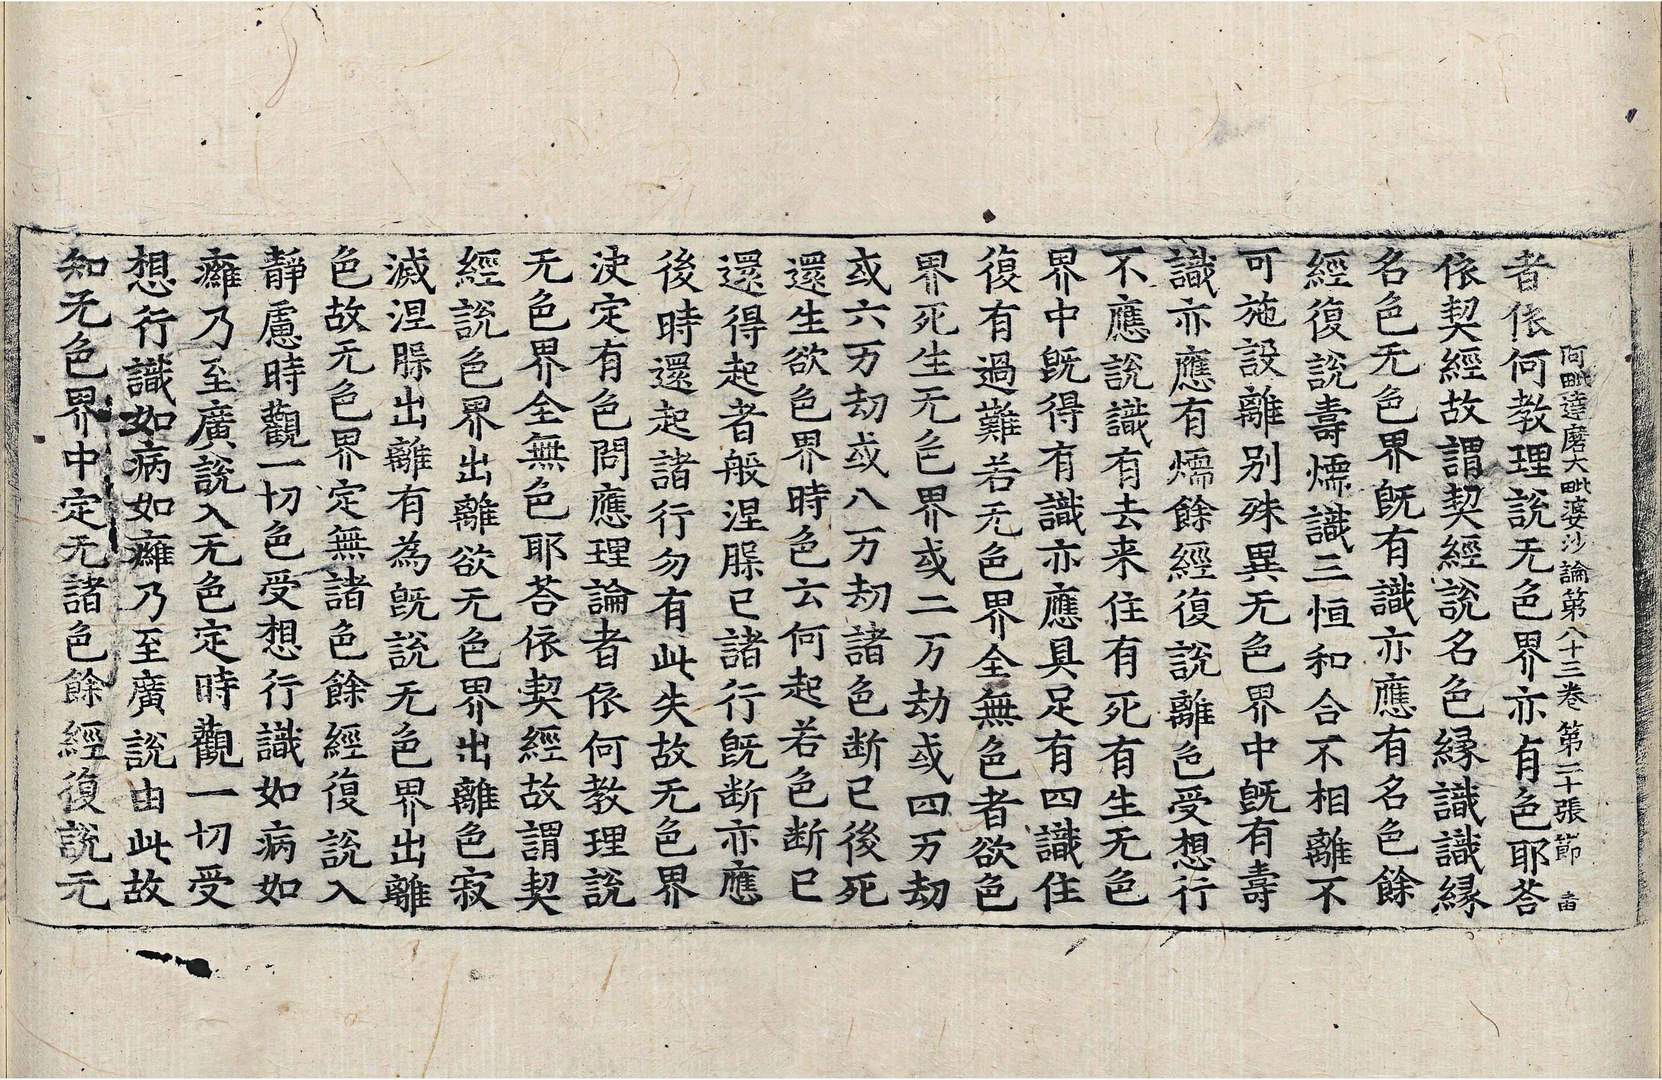 阿毗達磨大毗婆沙論第八十三卷 第二十張 節
者依何教理說无色界亦有色耶荅
依契經故謂契經說名色緣識識緣
名色无色界旣有識亦應有名色餘
經復說壽煗識三恒和合不相離不
可施設離别殊異无色界中旣有壽
識亦應有煗餘經復說離色受想行
不應說識有去来住有死有生无色
界中旣得有識亦應具足有四識住
復有過難若无色界全無色者欲色
界死生无色界或二万劫或四万劫
或六万劫或八万劫諸色断已後死
還生欲色界時色云何起若色断已
還得起者般涅槃已諸行旣断亦應
後時還起諸行勿有此失故无色界
決定有色問應理論者依何教理說
无色界全無色耶荅依契經故謂契
經說色界出離欲无色界出離色寂
滅涅槃出離有為旣說无色界出離
色故无色界定無諸色餘經復說入
靜慮時觀一切色受想行識如病如
癰乃至廣說入无色定時觀一切受
想行識如病如癰乃至廣說由此故
知无色界中定无諸色餘經復說无